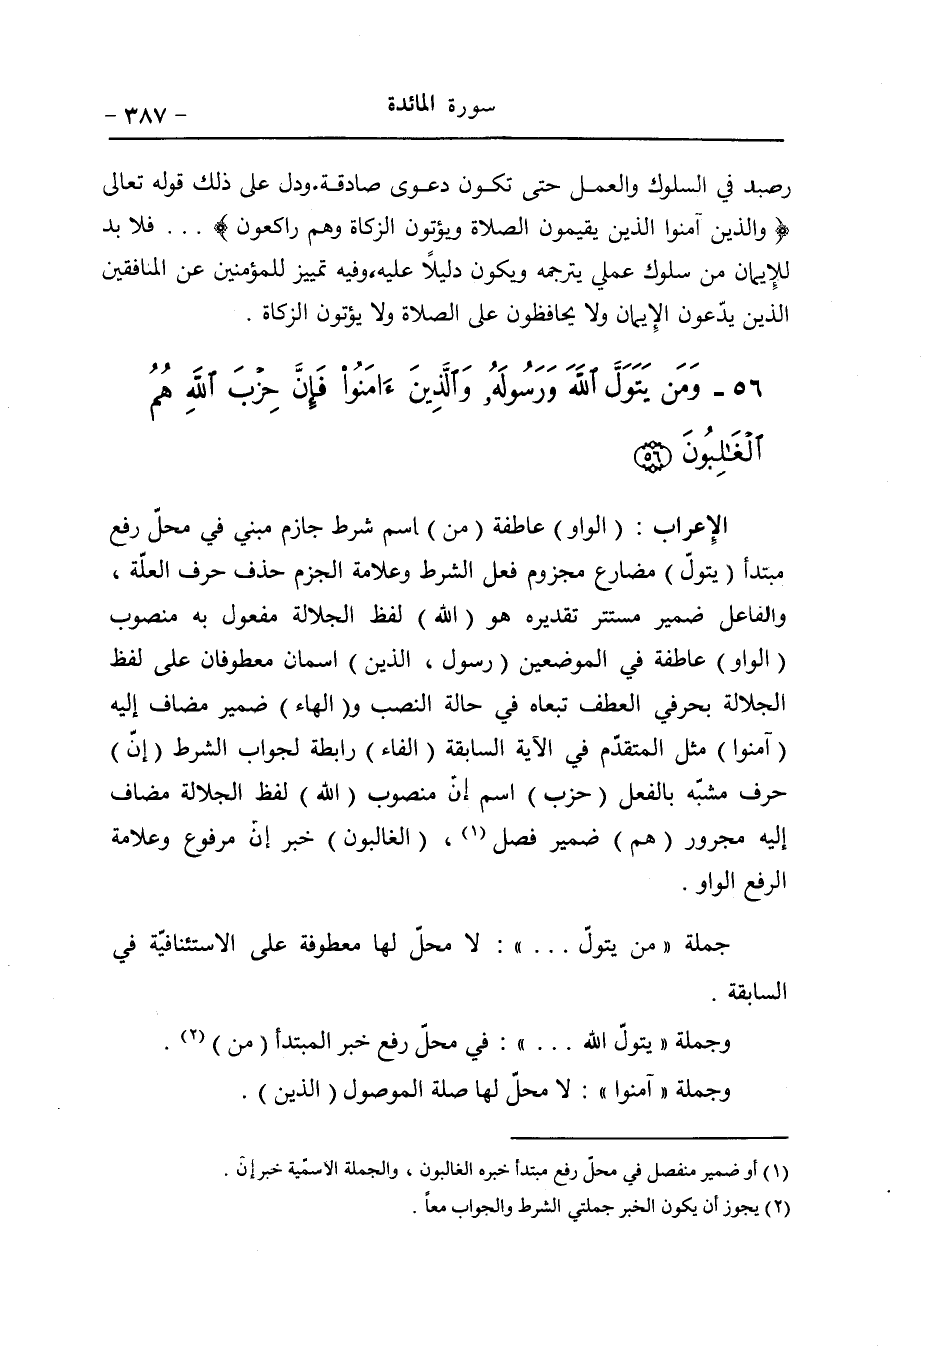 سورة المائدة
- ٣٨٧ -
رصيد في السلوك والعمـل حتى تكـون دعـوى صادقـة.ودل على ذلك قوله تعالى
﴿ والذين آمنوا الذين يقيمون الصلاة ويؤتون الزكاة وهم راكعون ﴾ . . . فلا بد
للإيمان من سلوك عملي يترجمه ويكون دليلاً عليه،وفيه تمييز للمؤمنين عن المنافقين
الذين يدّعون الإيمان ولا يحافظون على الصلاة ولا يؤتون الزكاة .
٥٦ - وَمَن يَتَوَلَّ ٱللَّهَ وَرَسُولَهُۥ وَٱلَّذِينَ ءَامَنُواْ فَإِنَّ حِزْبَ ٱللَّهِ هُمُ
ٱلْغَٰلِبُونَ ﴿٥٦﴾
الإعراب : ( الواو ) عاطفة ( من ) اسم شرط جازم مبني في محلّ رفع
مبتدأ ( يتولّ ) مضارع مجزوم فعل الشرط وعلامة الجزم حذف حرف العلّة ،
والفاعل ضمير مستتر تقديره هو ( الله ) لفظ الجلالة مفعول به منصوب
( الواو ) عاطفة في الموضعين ( رسول ، الذين ) اسمان معطوفان على لفظ
الجلالة بحرفي العطف تبعاه في حالة النصب و( الهاء ) ضمير مضاف إليه
( آمنوا ) مثل المتقدّم في الآية السابقة ( الفاء ) رابطة لجواب الشرط ( إنّ )
حرف مشبّه بالفعل ( حزب ) اسم إنّ منصوب ( الله ) لفظ الجلالة مضاف
إليه مجرور ( هم ) ضمير فصل (١) ، ( الغالبون ) خبر إنّ مرفوع وعلامة
الرفع الواو .
جملة « من يتولّ . . . » : لا محلّ لها معطوفة على الاستئنافيّة في
السابقة .
وجملة « يتولّ الله . . . » : في محلّ رفع خبر المبتدأ ( من ) (٢) .
وجملة « آمنوا » : لا محلّ لها صلة الموصول ( الذين ) .
(١) أو ضمير منفصل في محلّ رفع مبتدأ خبره الغالبون ، والجملة الاسمّية خبر إنّ .
(٢) يجوز أن يكون الخبر جملتي الشرط والجواب معاً .